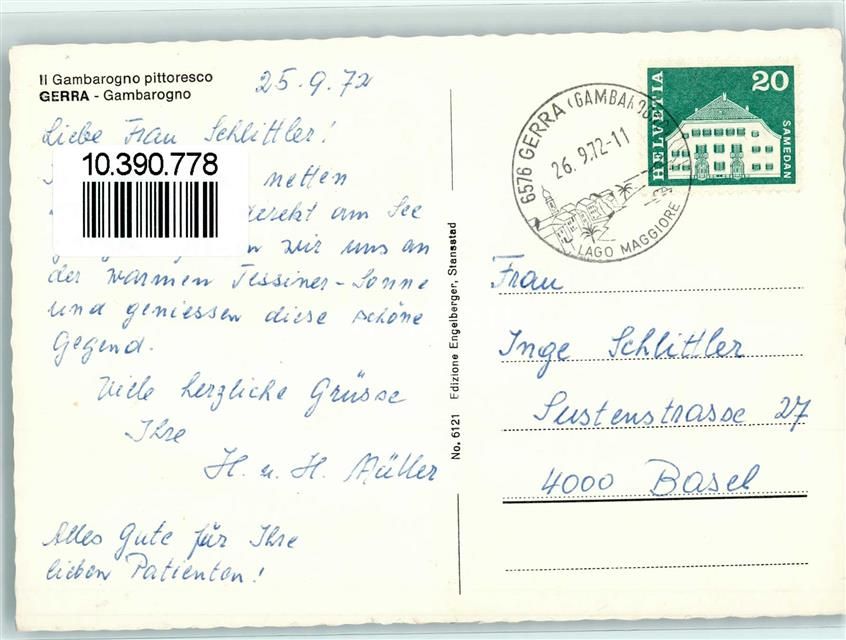 Il Gambarogno pittoresco
GERRA - Gambarogno
25.9.72
Liebe Frau Schlittler!
10.390.778
netten
direkt am See
wir uns an
der warmen Tessiner-Sonne
und geniessen diese schöne
Gegend.
Viele herzliche Grüsse
Ihre
H. u. H. Müller
Alles Gute für Ihre
lieben Patienten!
No. 6121 Edizione Engelberger, Stansstad
6576 GERRA (GAMBAROGNO)
26.9.72-11
LAGO MAGGIORE
HELVETIA
20
SAMEDAN
Frau
Inge Schlittler
Sustenstrasse 27
4000 Basel